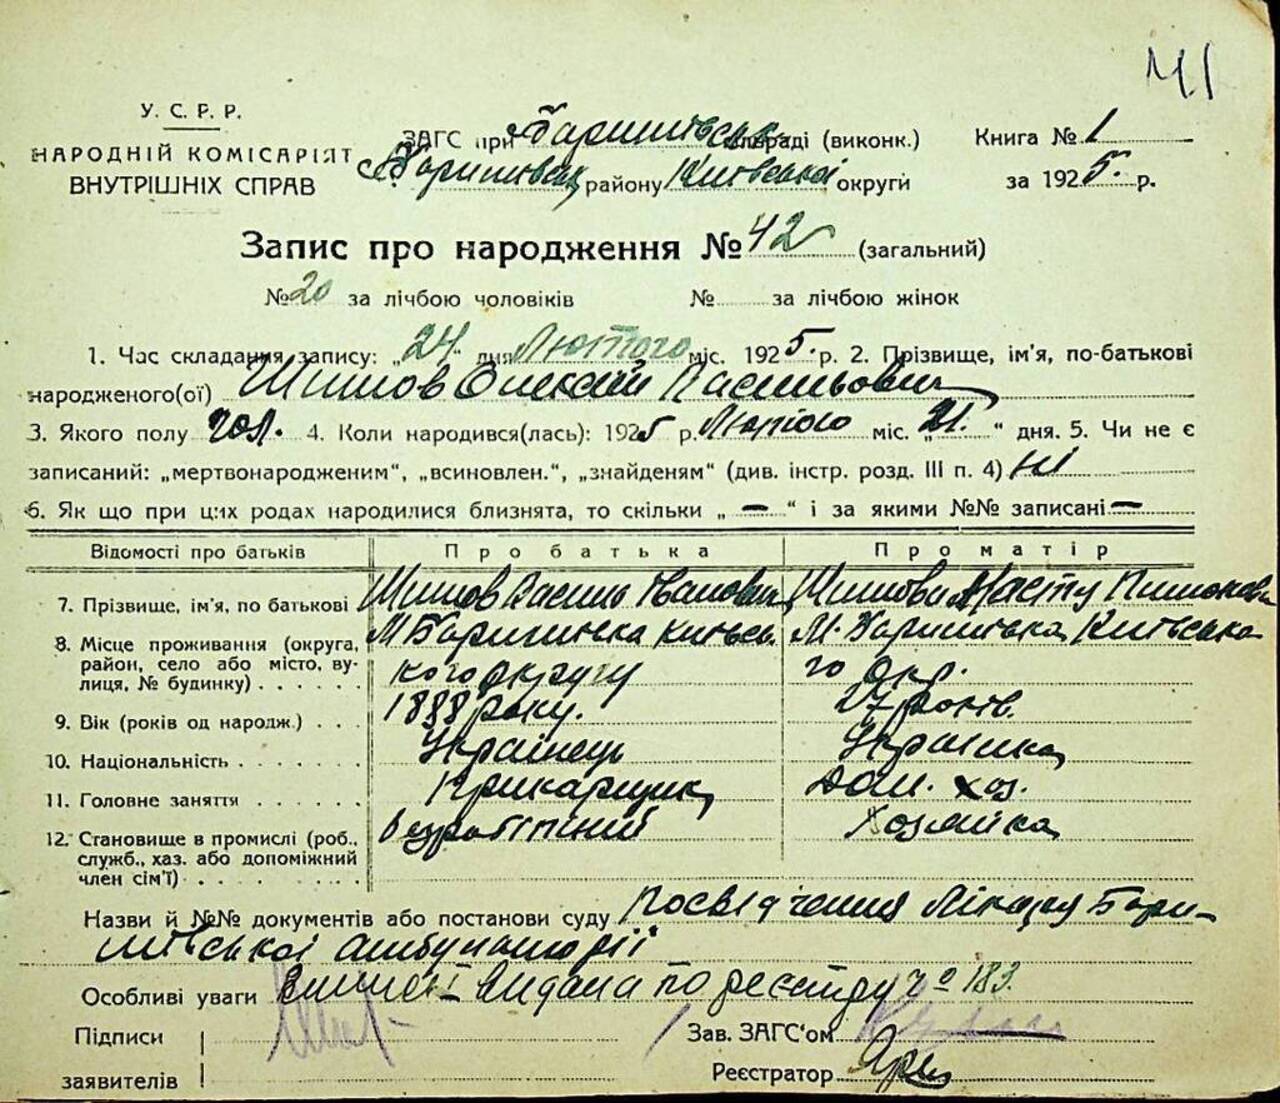 41
У. С. Р. Р.
НАРОДНІЙ КОМІСАРІЯТ
ВНУТРІШНІХ СПРАВ
ЗАГС при Баришівськ сельраді (виконк.) Книга № 1
Баришівськ району Київської округи за 1925 р.
Запис про народження № 42 (загальний)
№ 20 за лічбою чоловіків № за лічбою жінок
1. Час складання запису: „24“ дня Лютого міс. 1925 р. 2. Прізвище, ім'я, по-батькові
народженого(ої) Шишов Олексій Васильович
3. Якого полу чол. 4. Коли народився(лась): 1925 р. Лютого міс. „21.“ дня. 5. Чи не є
записаний: „мертвонародженим“, „всиновлен.“, „знайденям“ (див. інстр. розд. III п. 4) Ні
6. Як що при цих родах народилися близнята, то скільки „ — “ і за якими №№ записані —
Відомості про батьків Про батька Про матір
7. Прізвище, ім'я, по батькові Шишов Василь Іванович Шишова
8. Місце проживання (округа, район, село або місто, вулиця, № будинку) М Баришівка Київсь- М. Баришівка Київсько-
кого округу го окр.
9. Вік (років од народж.) 1888 року. 27 років.
10. Національність Українець Українка
11. Головне заняття Прикащик Дом. хоз.
12. Становище в промислі (роб., служб., хаз. або допоміжний член сім'ї) безробітний Хозяйка
Назви й №№ документів або постанови суду Посвідчення Лікаря Бари-
шівської амбулаторії
Особливі уваги видана по реєстру № 183.
Підписи
заявителів
Зав. ЗАГС'ом
Реєстратор